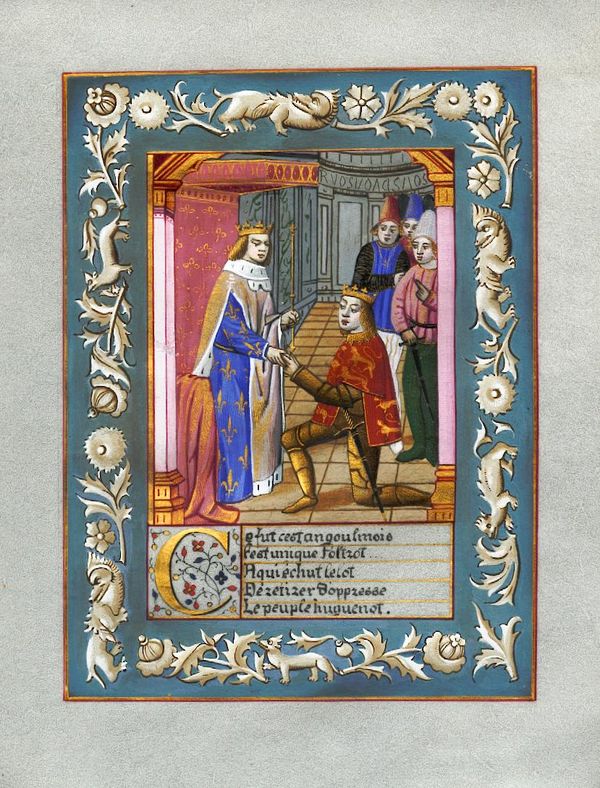 Ce fut cest angoulmois
Cest unique Poltrot
A qui échut le lot
De retirer d'oppresse
Le peuple huguenot.